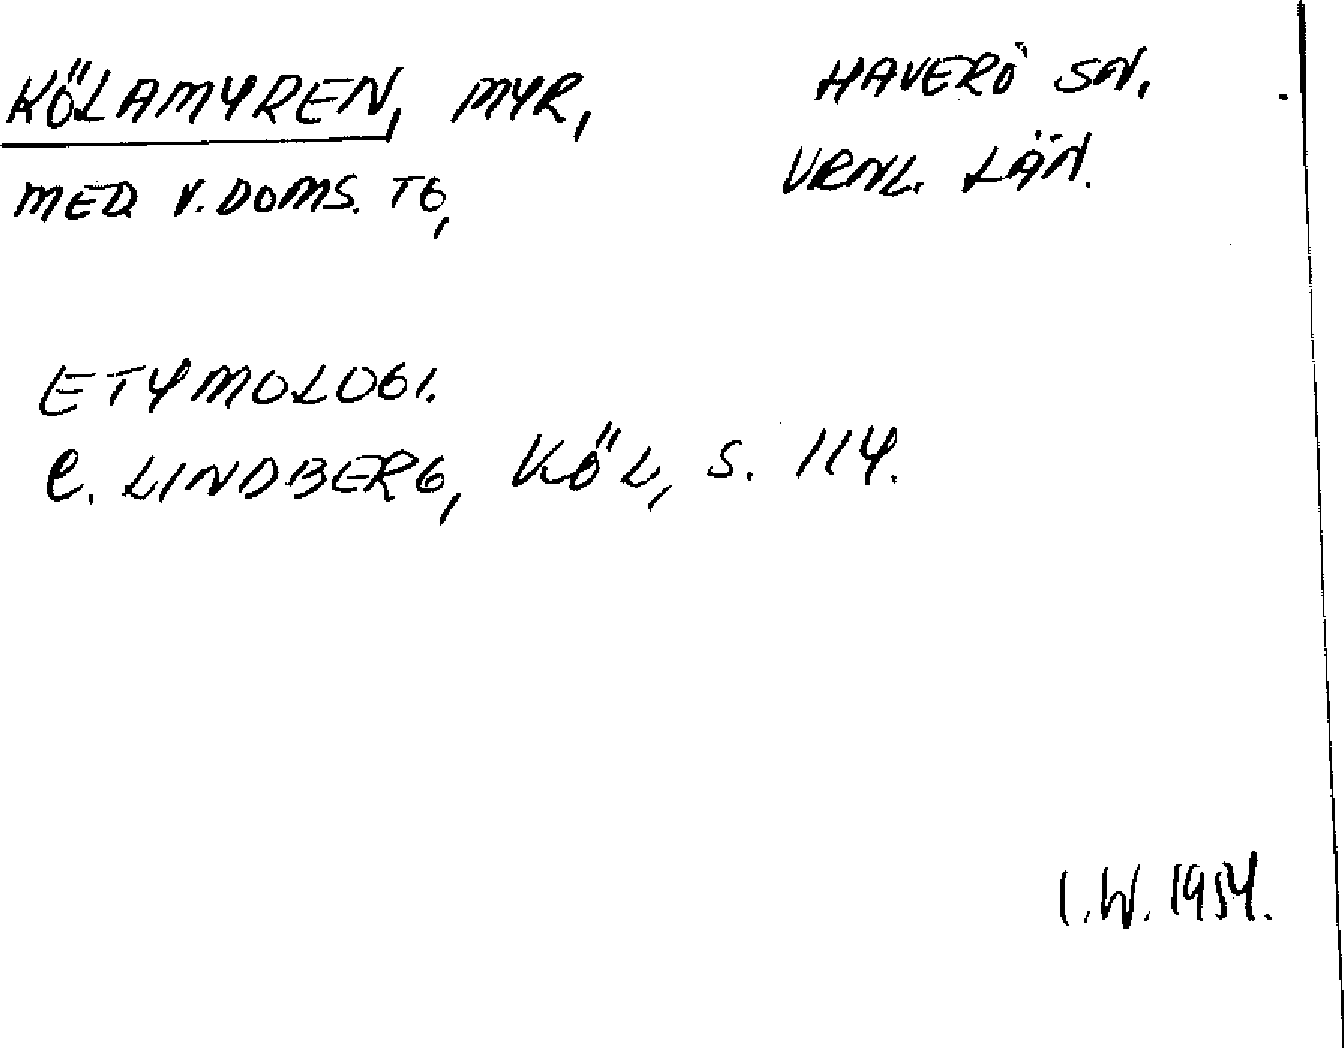 KÖLAMYREN, MYR,
MED. V. DOMS. TG,
HAVERÖ SN.
VRNL. LÄN.
ETYMOLOGI.
C. LINDBERG, KÖL, S. 114.
I.W. 1954.